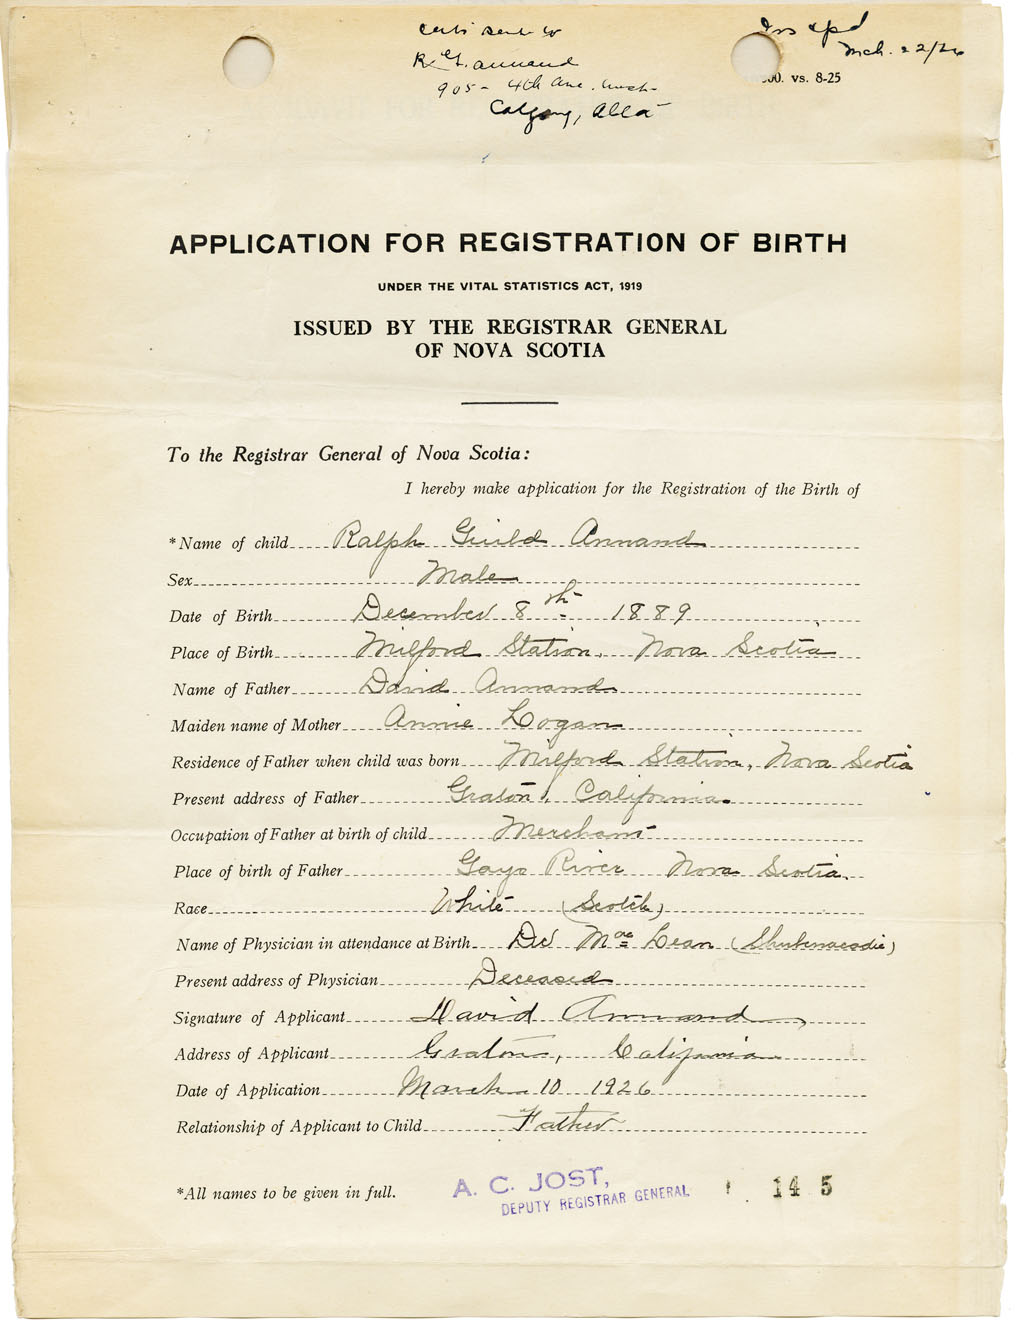 Certi sent to
R G. Annand
905 - 4th Ave. West
Calgary, Alta
Mch. 22/26
00. vs. 8-25
APPLICATION FOR REGISTRATION OF BIRTH
UNDER THE VITAL STATISTICS ACT, 1919
ISSUED BY THE REGISTRAR GENERAL
OF NOVA SCOTIA
To the Registrar General of Nova Scotia:
I hereby make application for the Registration of the Birth of
*Name of child Ralph Guild Annand
Sex Male
Date of Birth December 8th 1889
Place of Birth Milford Station, Nova Scotia
Name of Father David Annand
Maiden name of Mother Annie Logan
Residence of Father when child was born Milford Station, Nova Scotia
Present address of Father Graton, California.
Occupation of Father at birth of child Merchant
Place of birth of Father Gays River Nova Scotia.
Race White (Scotch)
Name of Physician in attendance at Birth Dr Mac Lean (Shubenacadie)
Present address of Physician Deceased
Signature of Applicant David Annand
Address of Applicant Graton, California
Date of Application March 10 1926
Relationship of Applicant to Child Father
*All names to be given in full.
A. C. JOST,
DEPUTY REGISTRAR GENERAL
14 5